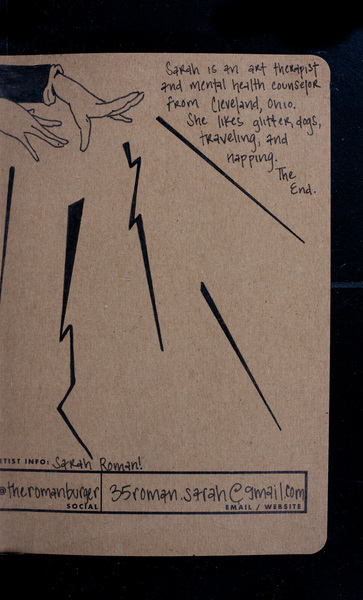 Sarah is an art therapist
and mental health counselor
from Cleveland, Ohio.
She likes glitter, dogs,
traveling, and
napping.
The
End.
TIST INFO: Sarah Roman!
@theromanburger
SOCIAL
35roman.sarah@gmail.com
EMAIL / WEBSITE